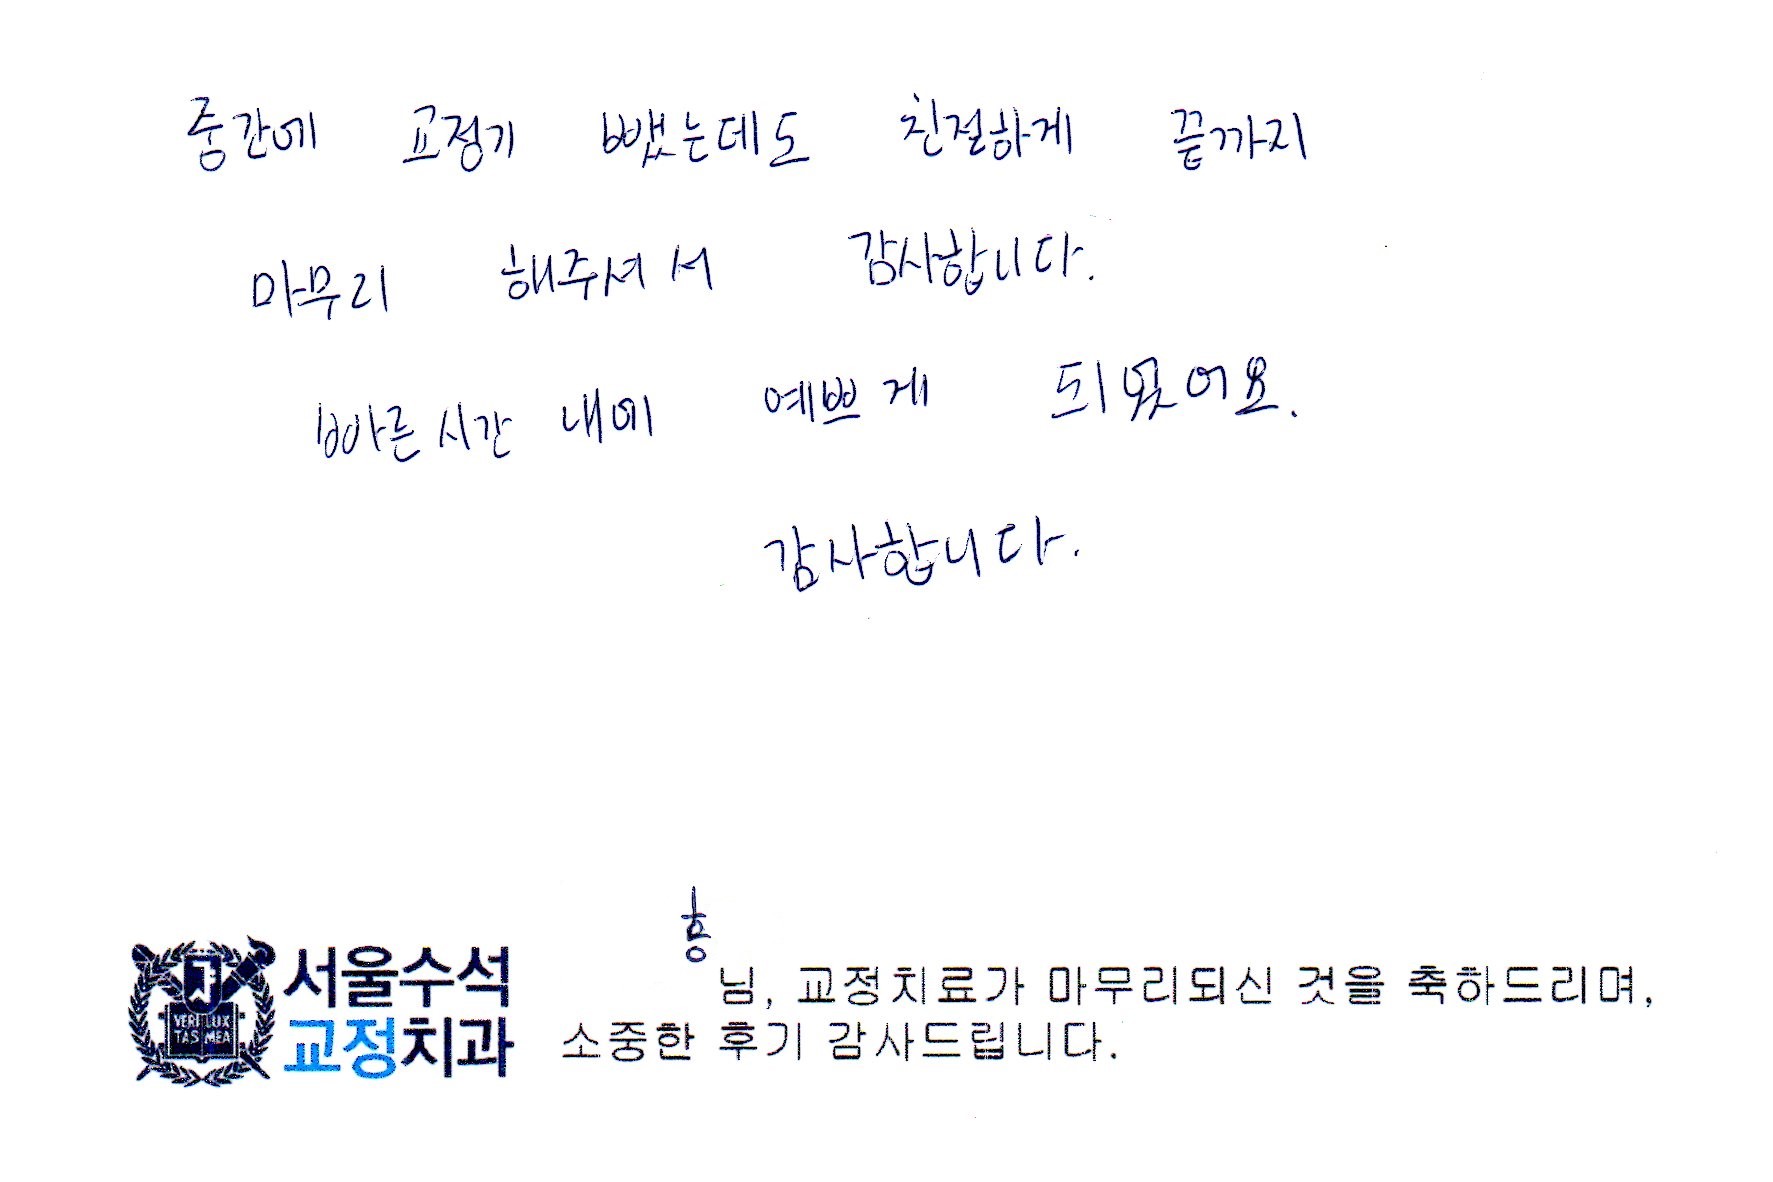 중간에 교정기 뺐는데도 친절하게 끝까지
마무리 해주셔서 감사합니다.
빠른시간 내에 예쁘게 되었어요.
감사합니다.
홍
님, 교정치료가 마무리되신 것을 축하드리며,
소중한 후기 감사드립니다.
서울수석
교정치과
VERI LUX
TAS MEA